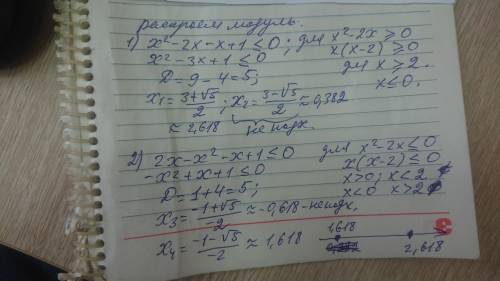 раскроем модуль.
1) x²-2x-x+1≤0; для x²-2x≥0
x²-3x+1≤0 x(x-2)≥0
D=9-4=5; для x≥2.
x₁=(3+√5)/2; x₂=(3-√5)/2≈0,382 x≤0.
≈2,618 не подх.
2) 2x-x²-x+1≤0 для x²-2x≤0
-x²+x+1≤0 x(x-2)≤0
D=1+4=5; x>0; x<2
x₃=(-1+√5)/-2≈-0,618-неподх. x<0 x>2
x₄=(-1-√5)/-2≈1,618 1,618 2,618